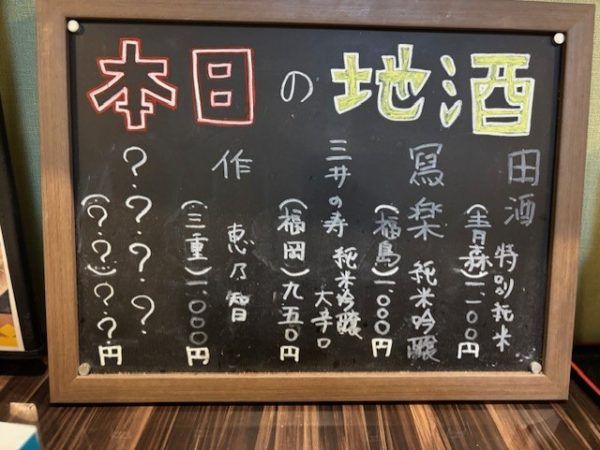 本日の地酒
田酒 特別純米
(青森)一、一〇〇円
寫楽 純米吟醸
(福島)一、〇〇〇円
三井の寿 純米吟醸 大辛口
(福岡)九五〇円
作 恵乃智
(三重)一、〇〇〇円
？？？？？
(？？)？？円